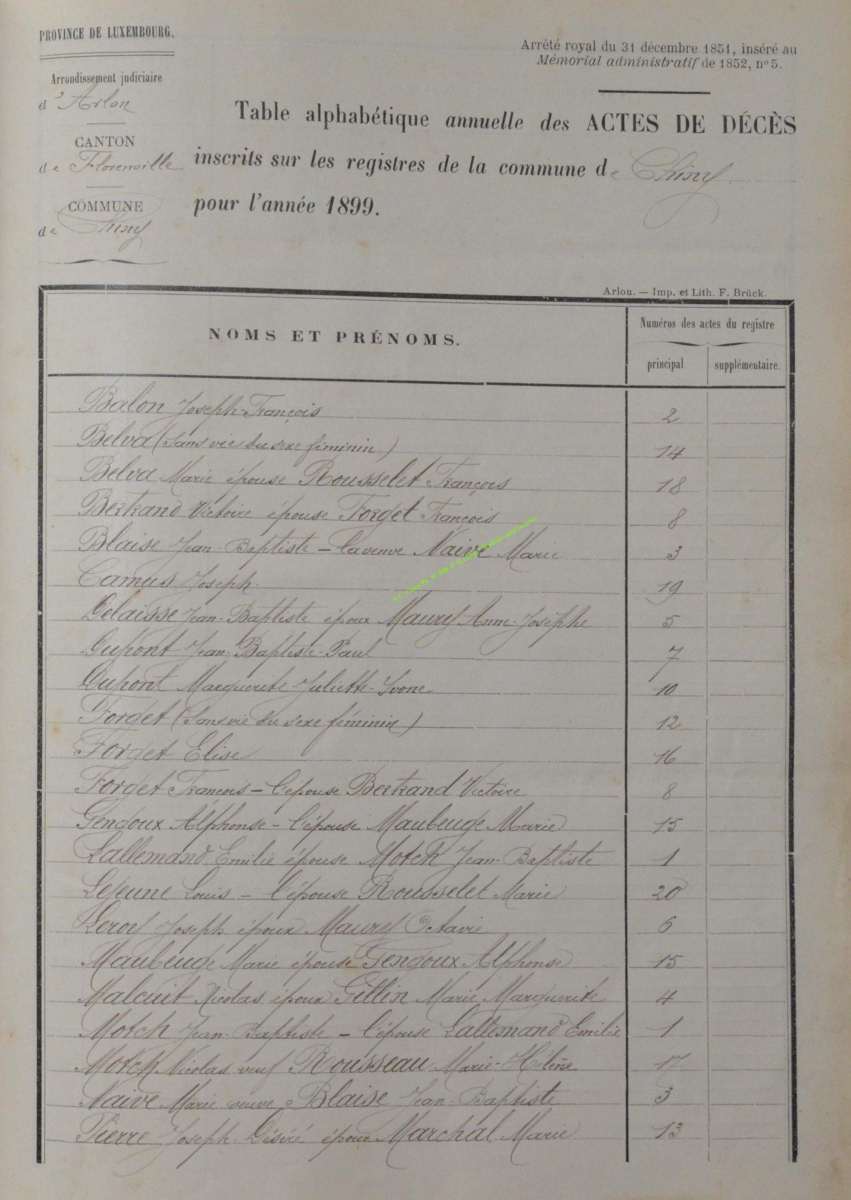 PROVINCE DE LUXEMBOURG.
Arrondissement judiciaire
d'Arlon
CANTON
de Florenville
COMMUNE
de Chiny
Arrêté royal du 31 décembre 1851, inséré au
Mémorial administratif de 1852, n° 5.
Table alphabétique annuelle des ACTES DE DÉCÈS
inscrits sur les registres de la commune de Chiny
pour l'année 1899.
Arlon. — Imp. et Lith. F. Brück.
NOMS ET PRÉNOMS.
Numéros des actes du registre
principal
supplémentaire.
Balon Joseph-François 2
Belva (Sans vie du sexe féminin) 14
Belva Marie épouse Rousselet François 18
Bertrand Victoire épouse Forget François 8
Blaise Jean-Baptiste – la veuve Naive Marie 3
Camus Joseph 19
Delaisse Jean-Baptiste époux Maury Anne-Josèphe 5
Dupont Jean-Baptiste-Paul 7
Dupont Marguerite-Juliette-Ivone 10
Forget (Sans vie du sexe féminin) 12
Forget Elise 16
Forget François – l'épouse Bertrand Victoire 8
Gendoux Alphonse – l'épouse Maubeuge Marie 15
Lallemand Emilie épouse Motch Jean-Baptiste 1
Lejeune Louis – l'épouse Rousselet Marie 20
Leroy Joseph époux Maury Octavie 6
Maubeuge Marie épouse Gendoux Alphonse 15
Malcuit Nicolas époux Gillin Marie Marguerite 4
Motch Jean-Baptiste – l'épouse Lallemand Emilie 1
Motch Nicolas veuf Rousseau Marie-Hélène 17
Naive Marie veuve Blaise Jean-Baptiste 3
Pierre Joseph-Désiré époux Marchal Marie 13